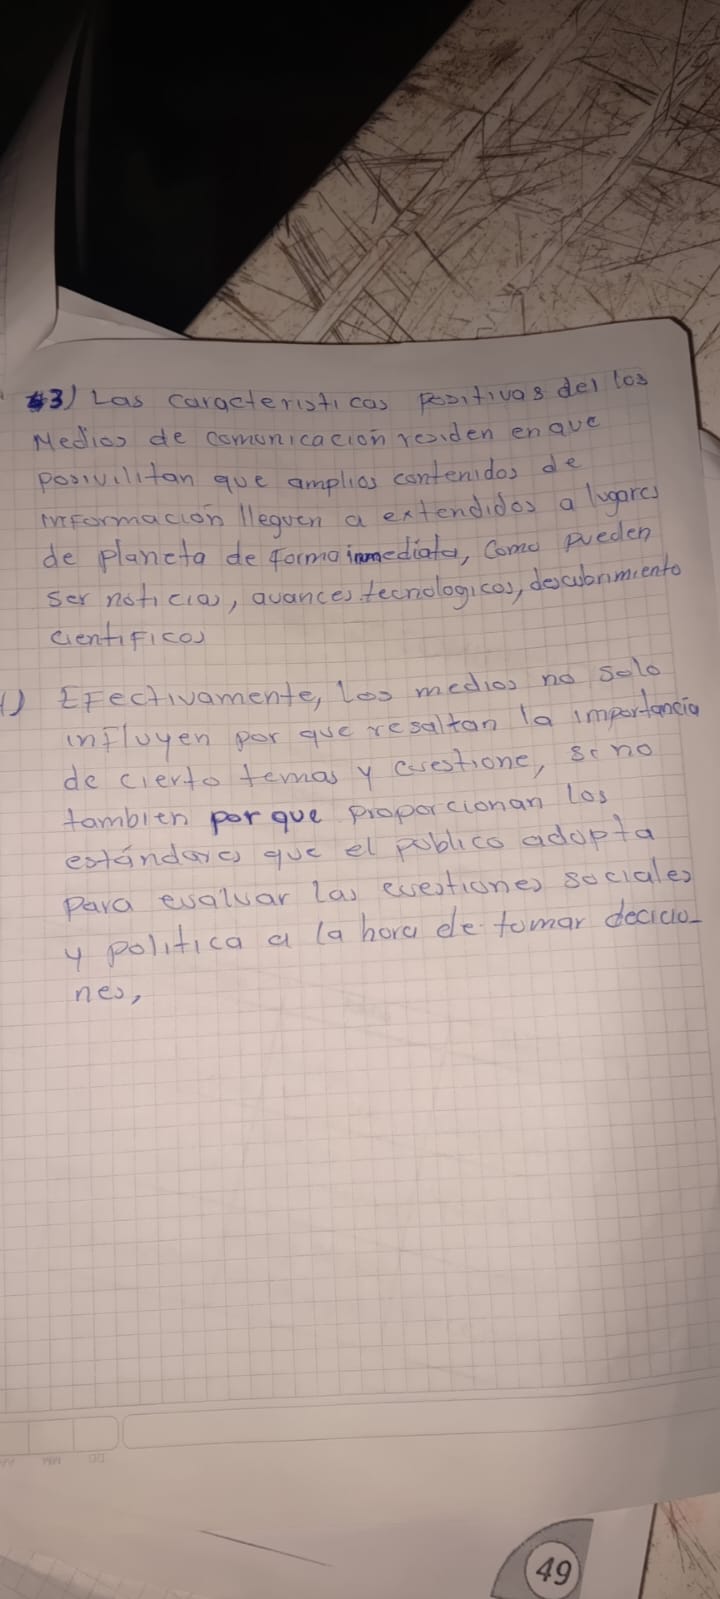 3) Las caracteristicas positivas del los
Medios de comunicacion residen en que
posivilitan que amplios contenidos de
informacion lleguen a extendidos a lugares
de planeta de forma inmediata, como pueden
ser noticias, avances tecnologicos, descubrimiento
cientificos
1) Efectivamente, Los medios no solo
influyen por que resaltan la importancia
de cierto temas y cuestione, si no
tambien por que proporcionan los
estándares que el publico adopta
para evaluar las cuestiones sociales
y politica a la hora de tomar decicio-
nes,
DD MM AA
49